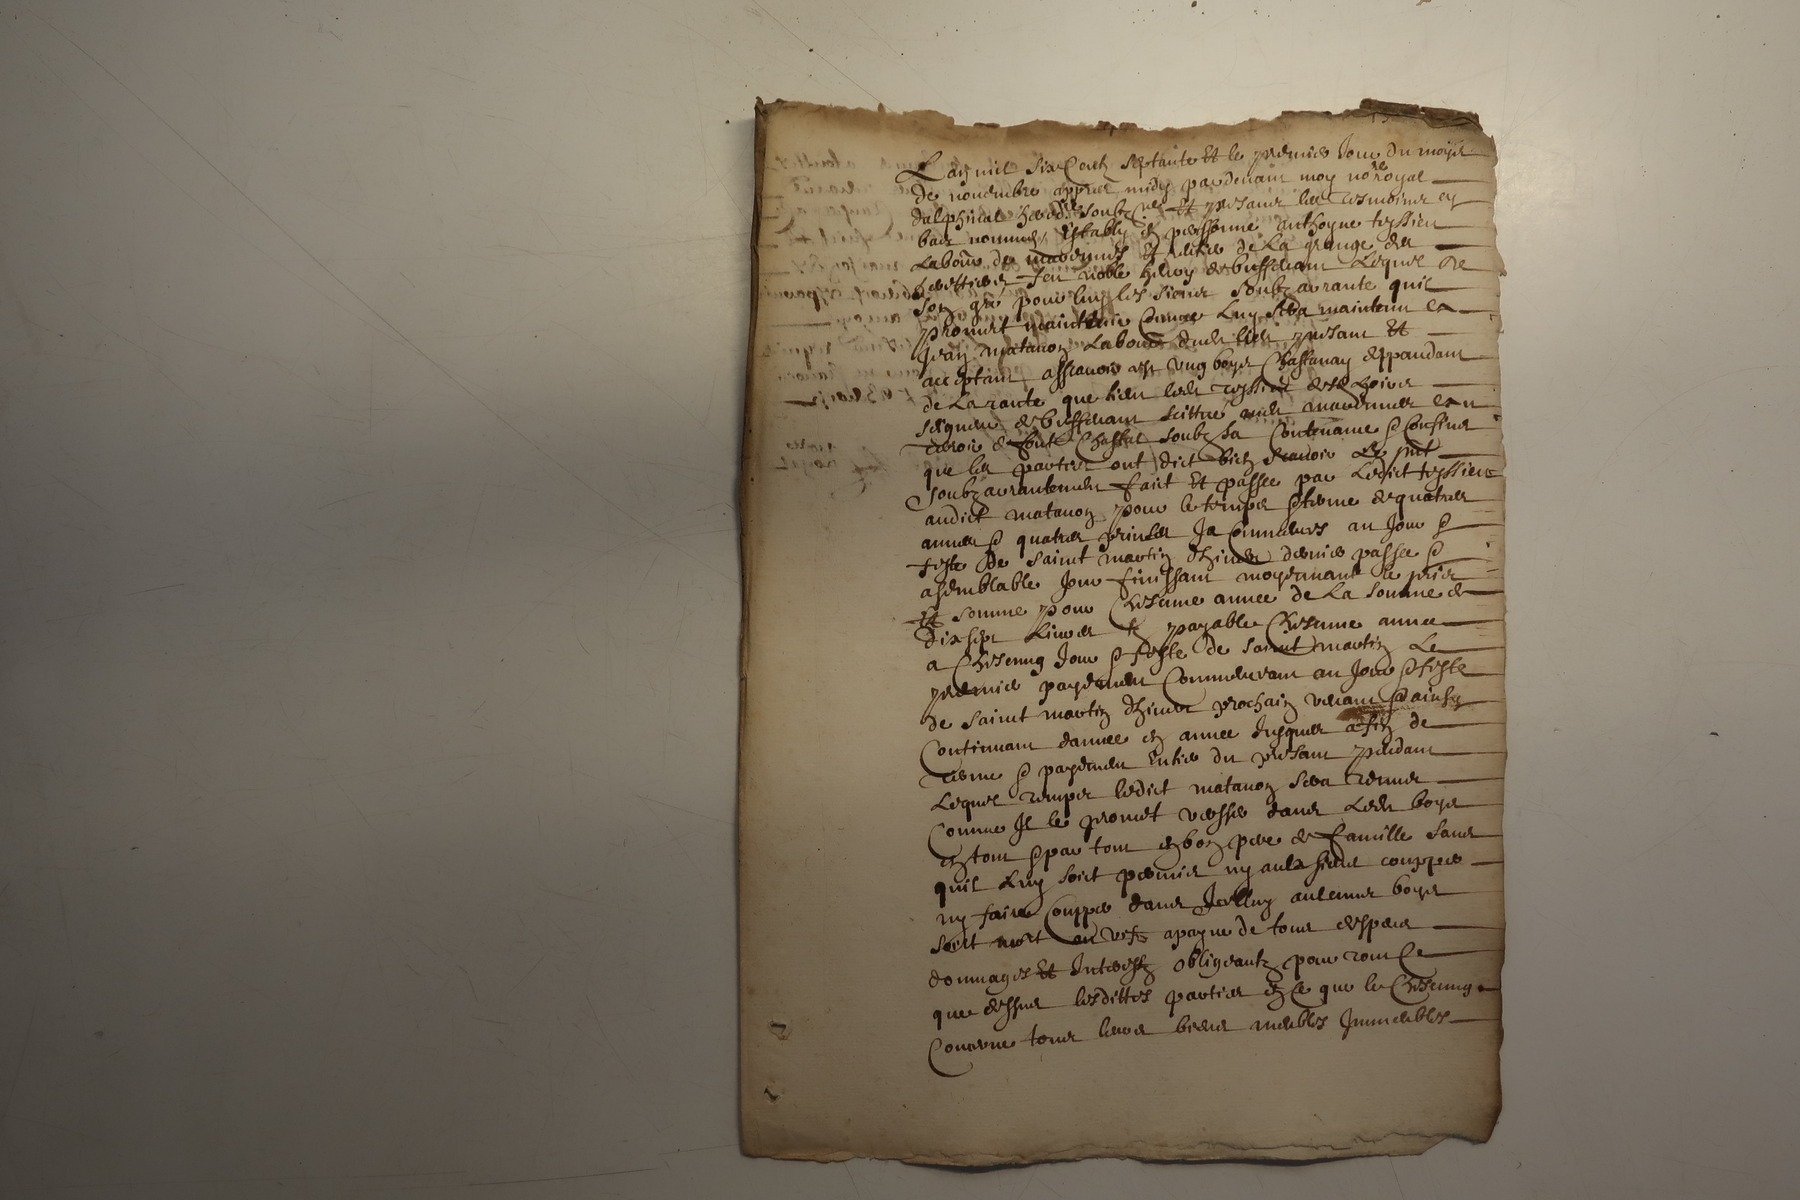 Lan mil six Centz septante Et le premier Jour du moys
de novembre appres midy pardevant moy no.re royal
dalphinal heredi.re soubz.né Et presans les tesmoins en
bas nommes, estably en personne anthoyne teyssier
Labour. de Et rentier de La grange des
feu noble de buffevant Lequel de
son gré pour luy les siens soubzarrante quil
promet maintenir Comme Luy sera maintenu a
Jean matavon Labour. dud. lieu presant Et
acceptant assavoir est ung boys Chassanay deppandant
de La rante que tient led. teyssier
seigneur de buffevant scittué
terroir de soubz sa Contenance & Confins
que les parties ont dict bien scavoir Le
soubzarrantement faict Et passé par Ledict teyssier
audict matavon pour le temps & terme de quatres
annees & quatres prinses Ja Commences au Jour &
feste de saint martin dhiver dernier passée &
a semblable Jour finissant moyennant le pris
Et somme pour Chescune annee de La somme de
dix sept Livres payable Chescune annee
a Chescung Jour & feste de saint martin Le
premier payement Commencant au Jour & feste
de saint martin dhiver prochain venant & ainsy
Continuant dannee en annee Jusques a fin de
terme & payement entier du presant pendant
Lequel temps ledict matavon sera tenu
Comme Il le promet verser dans Led. boys
en tout & par tout en bon pere de famille sans
quil Luy soict permis ny aulx siens coupper
ny faire Coupper dans Icelluy aulcuns boys
soict mort ou vifz a payne de tous despans
dommages Et Interestz obligeantz pour tout Ce
que dessus lesdittes parties en Ce que les Chescung
Concerne tous leurs biens meubles Immeubles